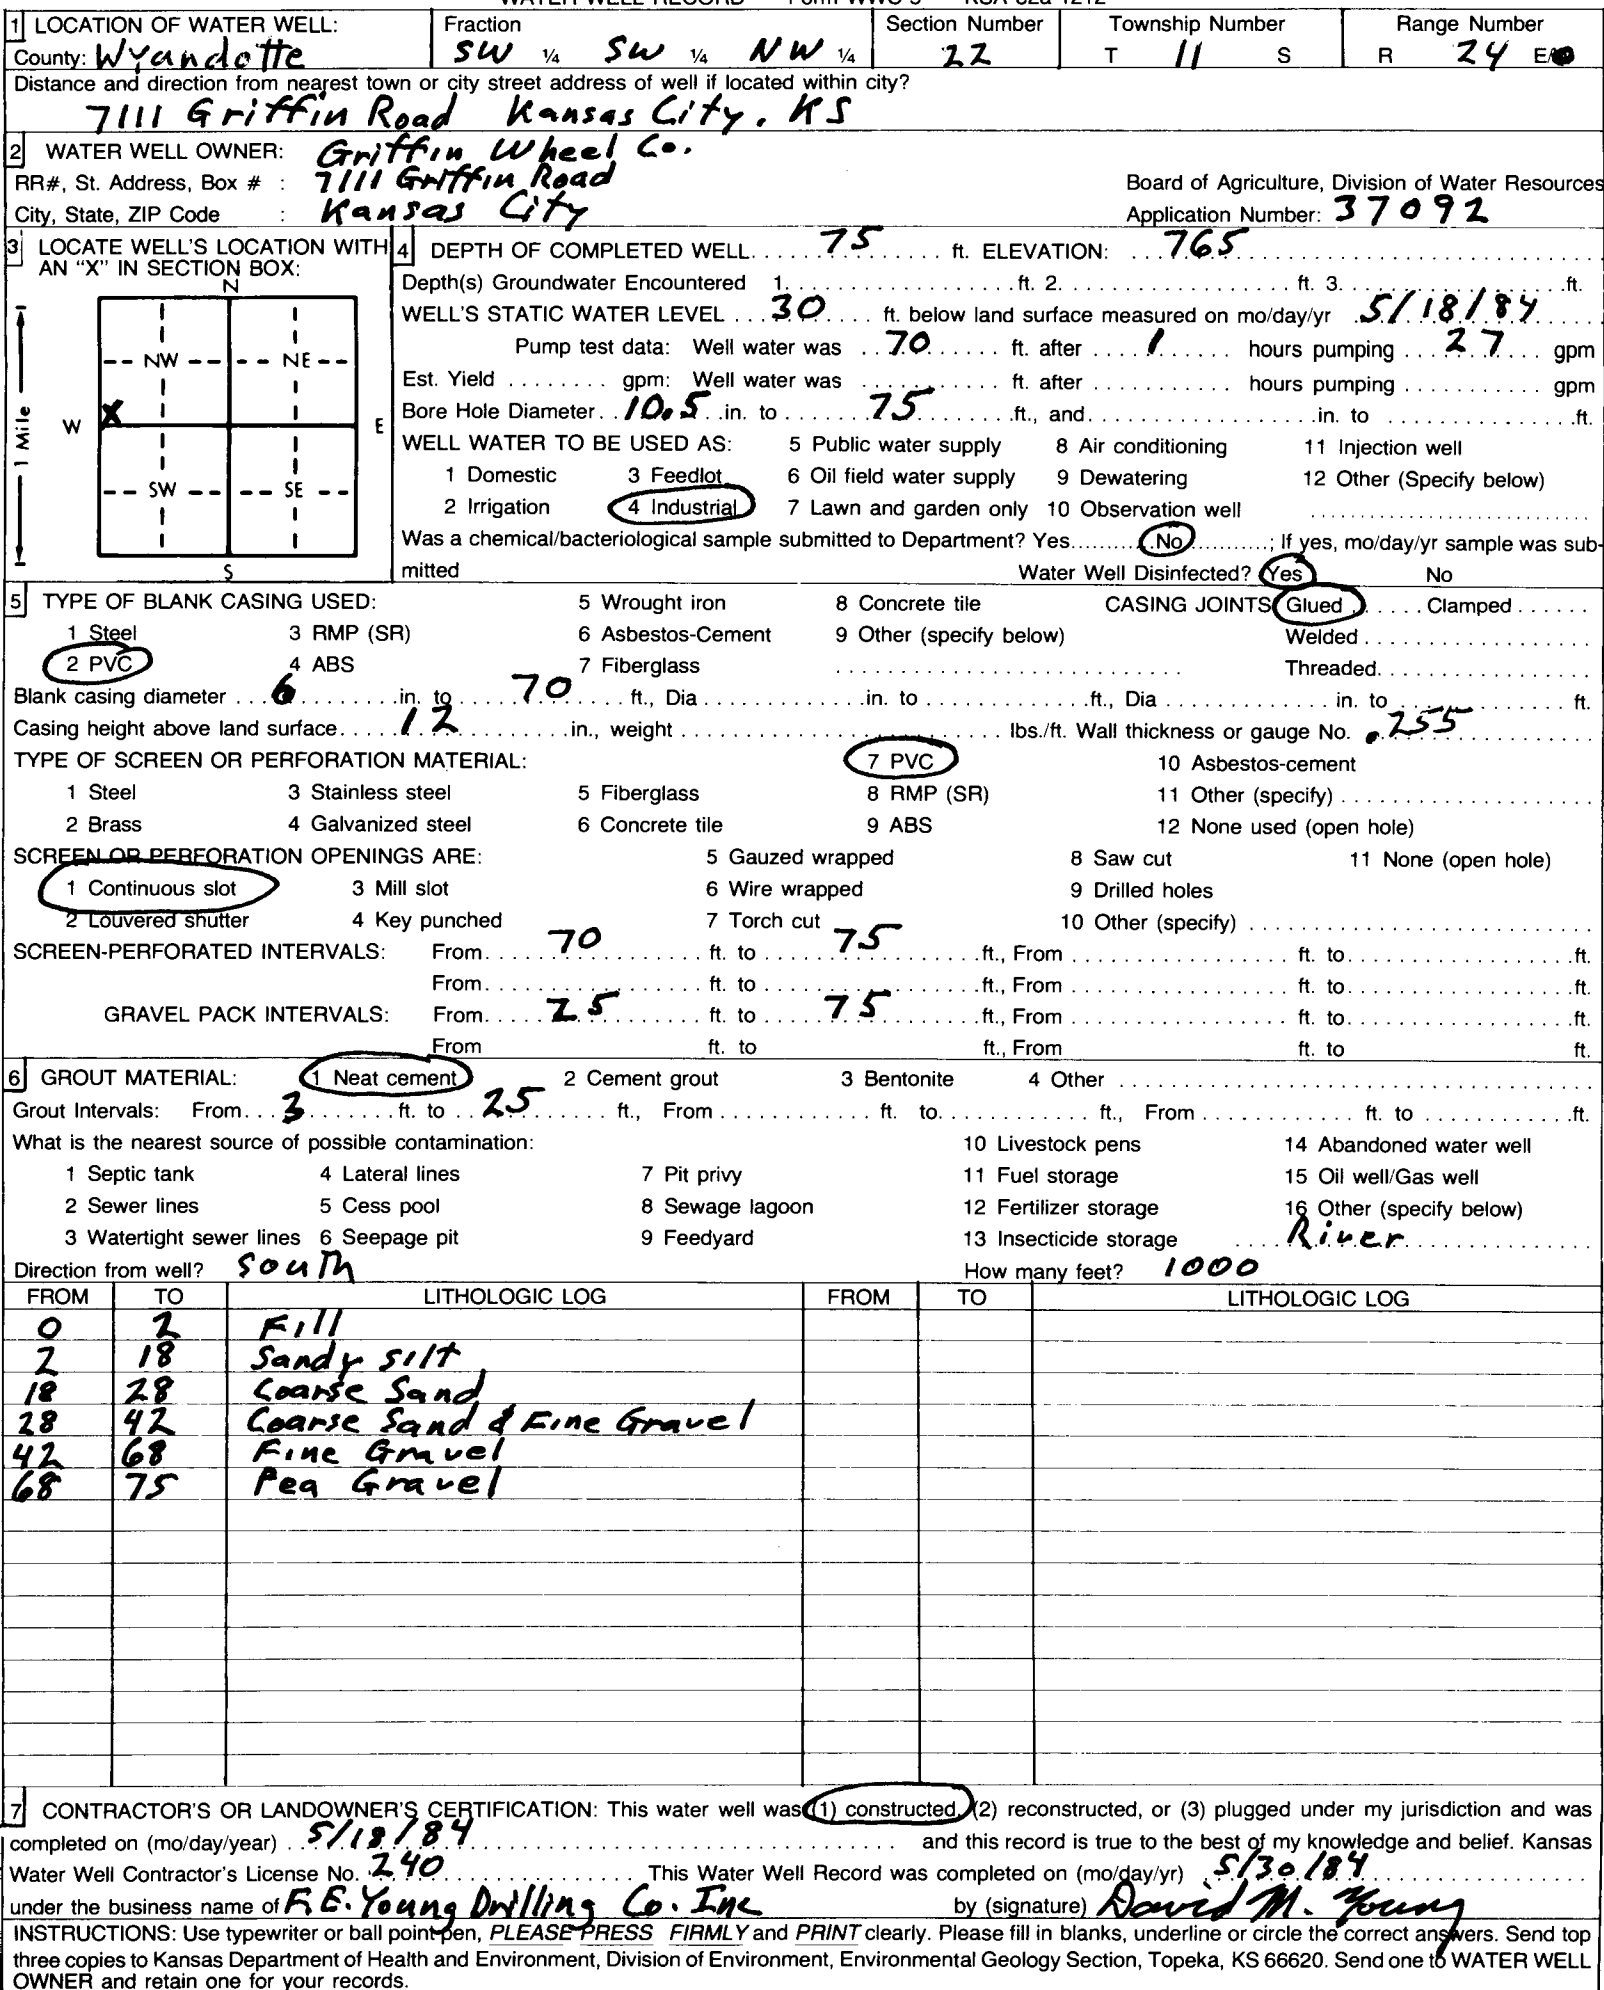 WATER WELL RECORD Form WWC-5 KSA 82a-1212
1 LOCATION OF WATER WELL: Fraction Section Number Township Number Range Number
County: Wyandotte SW ¼ SW ¼ NW ¼ 22 T 11 S R 24 E/
Distance and direction from nearest town or city street address of well if located within city?
7111 Griffin Road Kansas City, KS
2 WATER WELL OWNER: Griffin Wheel Co.
RR#, St. Address, Box # : 7111 Griffin Road Board of Agriculture, Division of Water Resources
City, State, ZIP Code : Kansas City Application Number: 37092
3 LOCATE WELL'S LOCATION WITH AN "X" IN SECTION BOX:
N
NW NE
W X E
SW SE
S
1 Mile
4 DEPTH OF COMPLETED WELL 75 ft. ELEVATION: 765
Depth(s) Groundwater Encountered 1. ft. 2. ft. 3. ft.
WELL'S STATIC WATER LEVEL 30 ft. below land surface measured on mo/day/yr 5/18/84
Pump test data: Well water was 70 ft. after 1 hours pumping 27 gpm
Est. Yield gpm: Well water was ft. after hours pumping gpm
Bore Hole Diameter 10.5 in. to 75 ft., and in. to ft.
WELL WATER TO BE USED AS: 5 Public water supply 8 Air conditioning 11 Injection well
1 Domestic 3 Feedlot 6 Oil field water supply 9 Dewatering 12 Other (Specify below)
2 Irrigation 4 Industrial 7 Lawn and garden only 10 Observation well
Was a chemical/bacteriological sample submitted to Department? Yes No ; If yes, mo/day/yr sample was sub-
mitted Water Well Disinfected? Yes No
5 TYPE OF BLANK CASING USED: 5 Wrought iron 8 Concrete tile CASING JOINTS: Glued Clamped
1 Steel 3 RMP (SR) 6 Asbestos-Cement 9 Other (specify below) Welded
2 PVC 4 ABS 7 Fiberglass Threaded
Blank casing diameter 6 in. to 70 ft., Dia in. to ft., Dia in. to ft.
Casing height above land surface 12 in., weight lbs./ft. Wall thickness or gauge No. .255
TYPE OF SCREEN OR PERFORATION MATERIAL: 7 PVC 10 Asbestos-cement
1 Steel 3 Stainless steel 5 Fiberglass 8 RMP (SR) 11 Other (specify)
2 Brass 4 Galvanized steel 6 Concrete tile 9 ABS 12 None used (open hole)
SCREEN OR PERFORATION OPENINGS ARE: 5 Gauzed wrapped 8 Saw cut 11 None (open hole)
1 Continuous slot 3 Mill slot 6 Wire wrapped 9 Drilled holes
2 Louvered shutter 4 Key punched 7 Torch cut 10 Other (specify)
SCREEN-PERFORATED INTERVALS: From 70 ft. to 75 ft., From ft. to ft.
From ft. to ft., From ft. to ft.
GRAVEL PACK INTERVALS: From 25 ft. to 75 ft., From ft. to ft.
From ft. to ft., From ft. to ft.
6 GROUT MATERIAL: 1 Neat cement 2 Cement grout 3 Bentonite 4 Other
Grout Intervals: From 3 ft. to 25 ft., From ft. to ft., From ft. to ft.
What is the nearest source of possible contamination: 10 Livestock pens 14 Abandoned water well
1 Septic tank 4 Lateral lines 7 Pit privy 11 Fuel storage 15 Oil well/Gas well
2 Sewer lines 5 Cess pool 8 Sewage lagoon 12 Fertilizer storage 16 Other (specify below)
3 Watertight sewer lines 6 Seepage pit 9 Feedyard 13 Insecticide storage River
Direction from well? South How many feet? 1000
FROM TO LITHOLOGIC LOG FROM TO LITHOLOGIC LOG
0 2 Fill
2 18 Sandy silt
18 28 Coarse Sand
28 42 Coarse Sand & Fine Gravel
42 68 Fine Gravel
68 75 Pea Gravel
7 CONTRACTOR'S OR LANDOWNER'S CERTIFICATION: This water well was (1) constructed, (2) reconstructed, or (3) plugged under my jurisdiction and was
completed on (mo/day/year) 5/18/84 and this record is true to the best of my knowledge and belief. Kansas
Water Well Contractor's License No. 240 This Water Well Record was completed on (mo/day/yr) 5/30/84
under the business name of F.E. Young Drilling Co. Inc by (signature) David M. Young
INSTRUCTIONS: Use typewriter or ball point pen, PLEASE PRESS FIRMLY and PRINT clearly. Please fill in blanks, underline or circle the correct answers. Send top
three copies to Kansas Department of Health and Environment, Division of Environment, Environmental Geology Section, Topeka, KS 66620. Send one to WATER WELL
OWNER and retain one for your records.